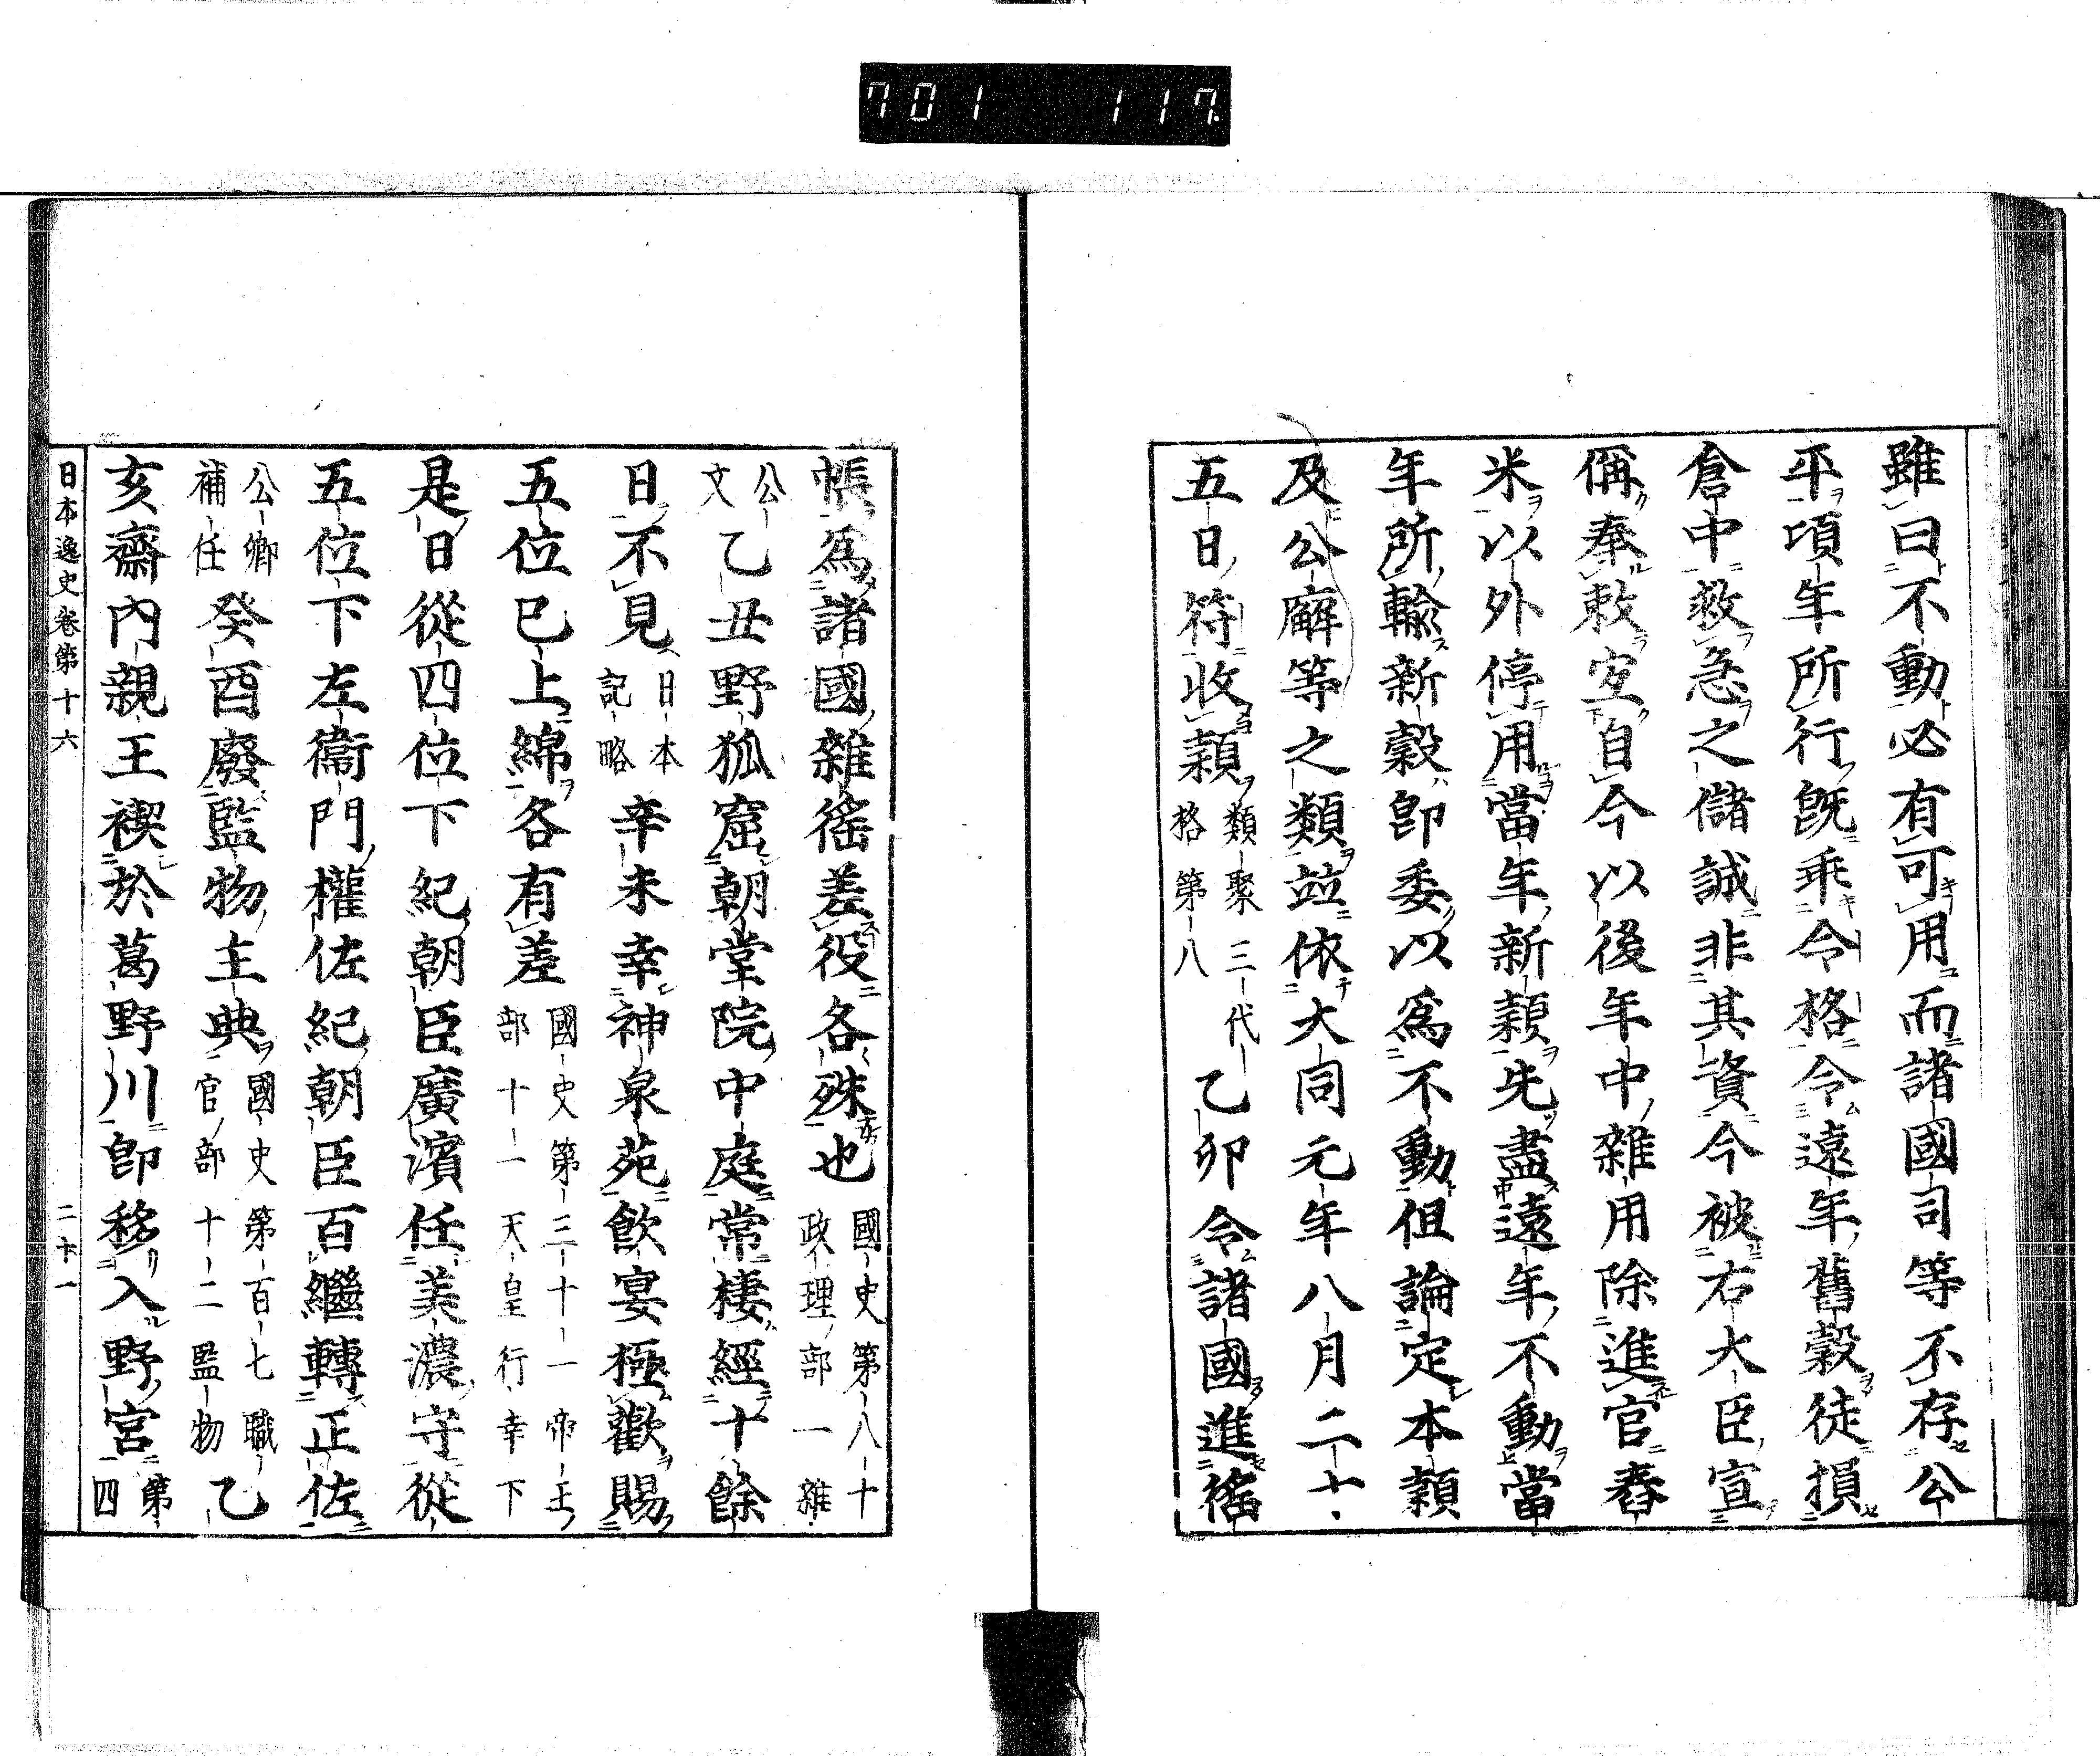 701 117
雖曰不動必有可用而諸國司等不存公
平項年所行既乖令格令遠年舊穀徒損
倉中救急之儲誠非其資今被右大臣宣
偁奉敕宜自今以後年中雜用除進官舂
米以外停用當年新穎先盡遠年不動當
年所輸新穀卽委以爲不動但論定本穎
及公廨等之類竝依大同元年八月二十
五日符收穎類聚三代格第八乙卯令諸國進徭
帳爲諸國雜徭差役各殊也國史第八十政理部一雜
公文乙丑野狐窟朝堂院中庭常棲經十餘
日不見日本記略辛未幸神泉苑飮宴極歡賜
五位已上綿各有差國史第三十一帝王部十一天皇行幸下
是日從四位下紀朝臣廣濱任美濃守從
五位下左衞門權佐紀朝臣百繼轉正佐
公卿補任癸酉廢監物主典國史第百七職官部十二監物乙
亥齋內親王禊於葛野川卽移入野宮第四
日本逸史卷第十六 二十一